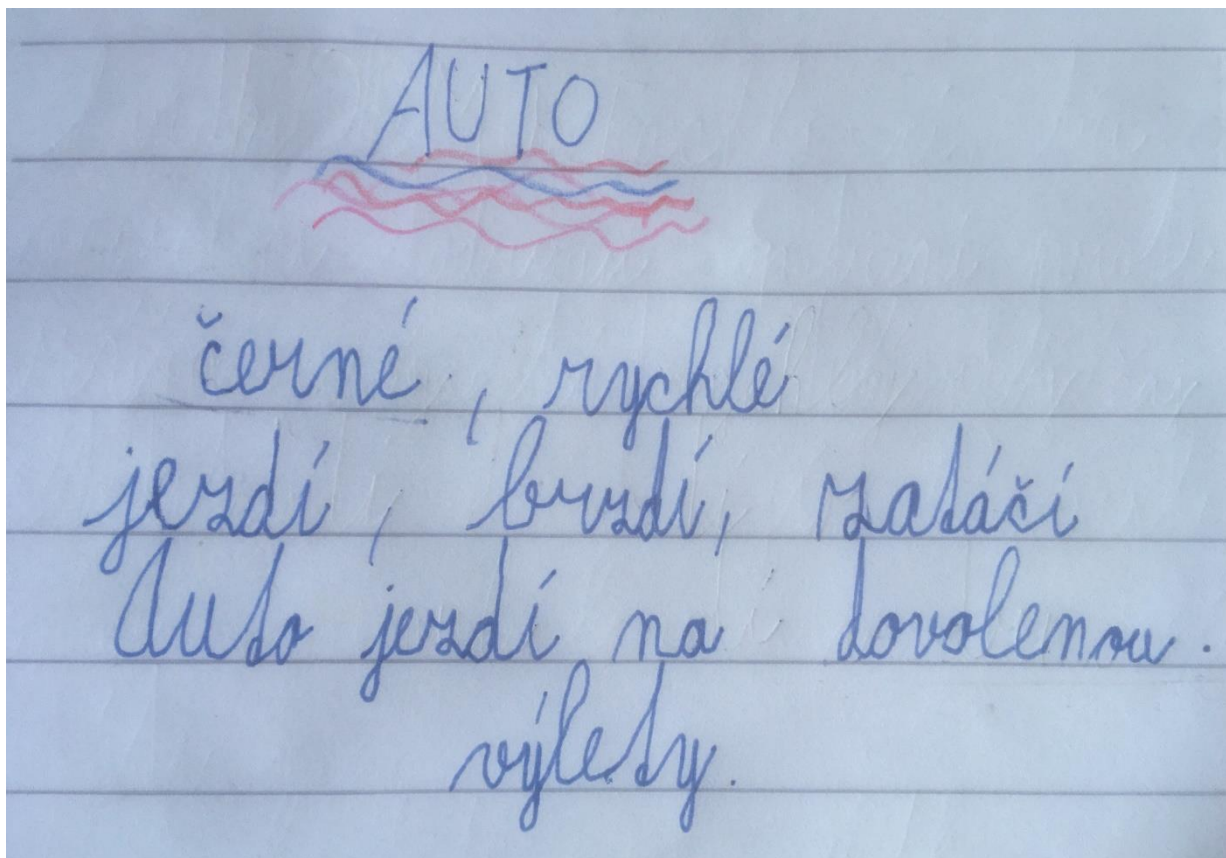 AUTO
černé, rychlé
jezdí, brzdí, zatáčí
Auto jezdí na dovolenou.
výlety.